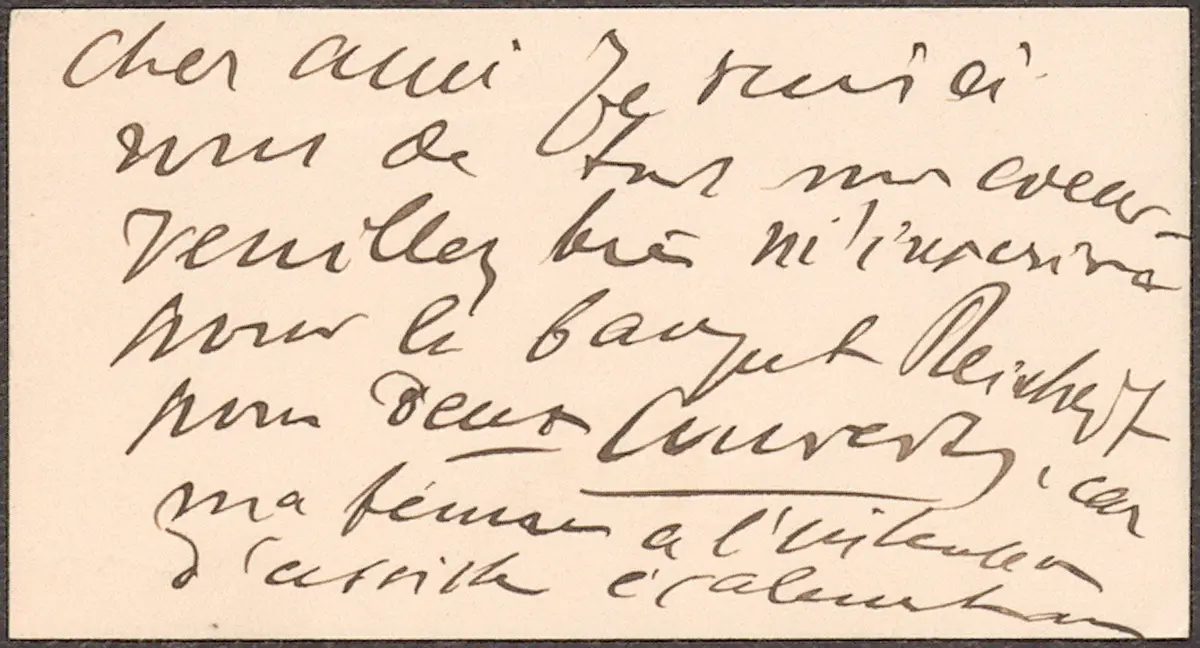 Cher ami Je suis ici
vous de tout mon coeur
Veuillez bien m'inscrire
pour le banquet
pour deux couverts, car
ma femme a l'intention
d'assister également